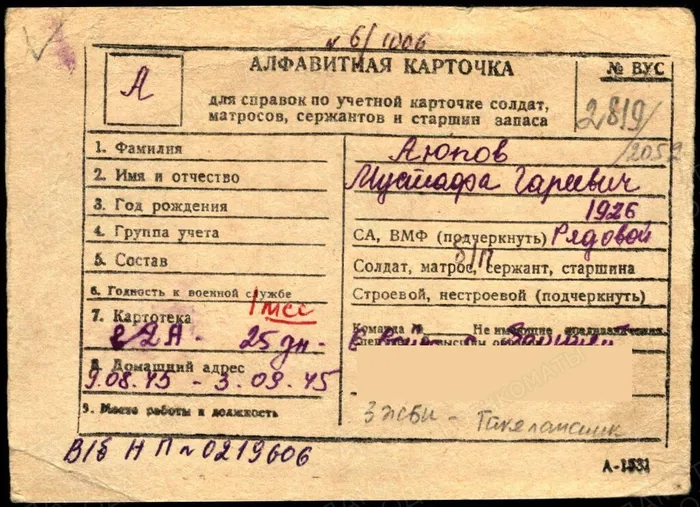 № 6/1006
АЛФАВИТНАЯ КАРТОЧКА
№ ВУС
А
для справок по учетной карточке солдат,
матросов, сержантов и старшин запаса
2819/
2052
1. Фамилия Аюпов
2. Имя и отчество Мустафа Гареевич
3. Год рождения 1926
4. Группа учета СА, ВМФ (подчеркнуть) Рядовой
б/п
5. Состав Солдат, матрос, сержант, старшина
6. Годность к военной службе Строевой, нестроевой (подчеркнуть)
7. Картотека Команда № Не имеющие
2А - 25 дн -
8. Домашний адрес
9.08.45 - 3.09.45
9. Место работы и должность ЗЖБИ - Такелажник
В/б НП № 0219606
А-1531